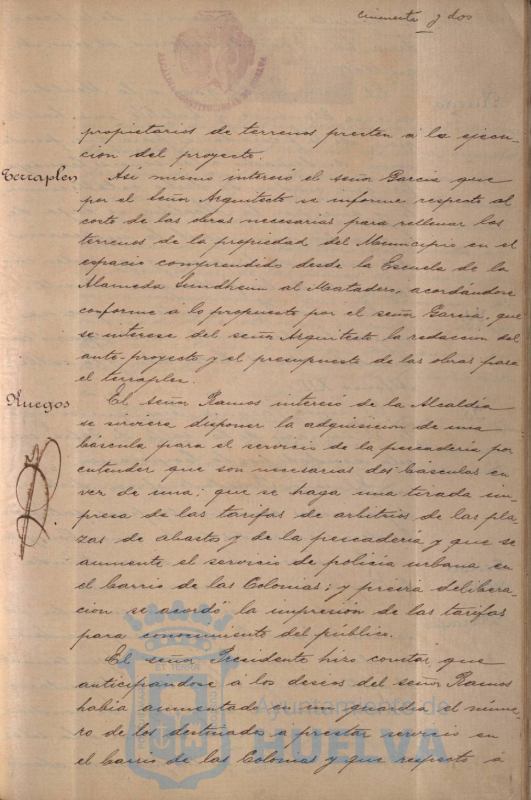 cincuenta y dos
ALCALDIA CONSTITUCIONAL DE HUELVA
propietarios de terrenos presten á la ejecu-
cion del proyecto.
Terraplen
Asi mismo interesó el señor Garcia que
por el Señor Arquitecto se informe respecto al
coste de las obras necesarias para rellenar los
terrenos de la propiedad del Municipio en el
espacio comprendido desde la Escuela de la
Alameda Sundheim al Matadero, acordándose
conforme á lo propuesto por el señor Garcia, que
se interese del señor Arquitecto la redaccion del
ante-proyecto y el presupuesto de las obras para
el terraplen.
Ruegos
El señor Ramos interesó de la Alcaldía
se sirviera disponer la adquisicion de una
báscula para el servicio de la pescadería por
entender que son necesarias dos básculas en
vez de una; que se haga una tirada im-
presa de las tarifas de arbitrios de las pla-
zas de abastos y de la pescaderia y que se
aumente el servicio de policia urbana en
el barrio de las Colonias; y previa delibera-
cion se acordó la impresión de las tarifas
para conocimiento del público.
El señor Presidente hizo constar que
anticipandose á los deseos del señor Ramos
habia aumentado en un guardia el núme-
ro de los destinados a prestar servicio en
el barrio de las Colonias y que respecto á
Ayuntamiento de
HUELVA